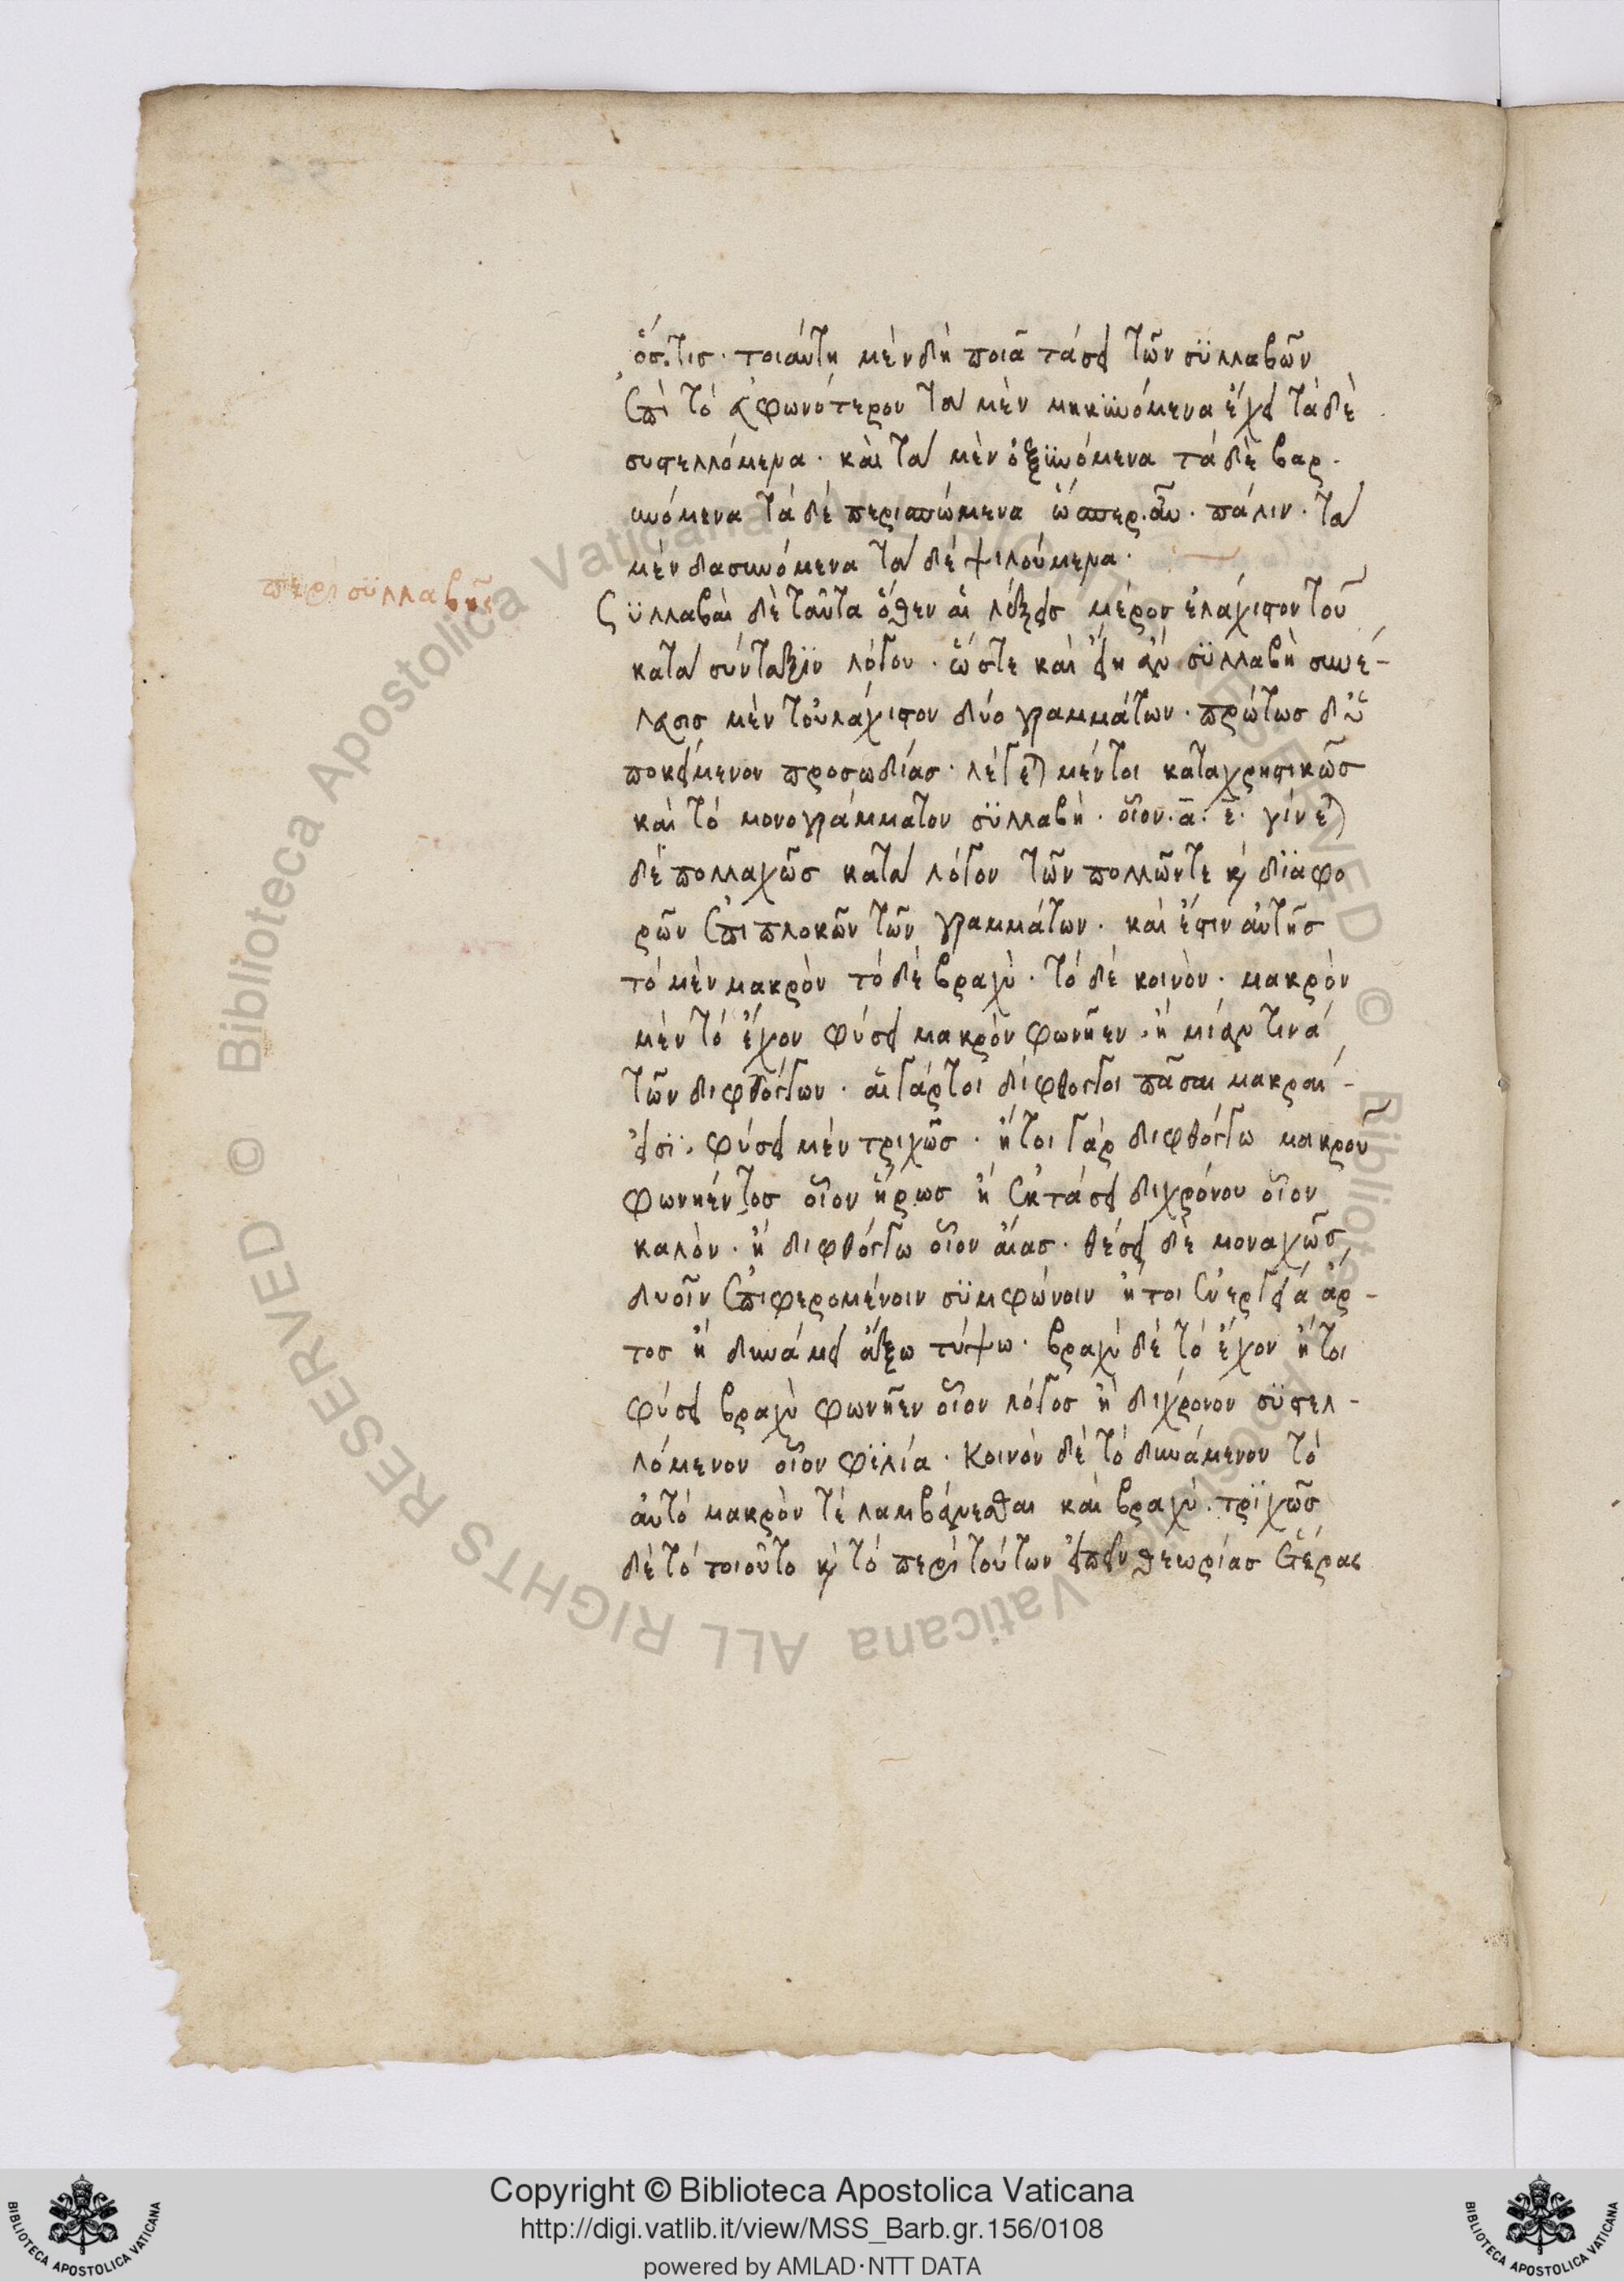 ὅς.τις· τοιάυτη μὲν δὴ ποιᾶ τάσει τῶν σϋλλαβῶν
ἐπὶ τὸ ἀφωνότερον τὰ μὲν μηκϋνόμενα ἔχει τὰ δὲ
συστελλόμενα· καὶ τὰ μὲν ὀξϋνόμενα τὰ δὲ βαρ-
υνόμενα τὰ δὲ περισπώμενα ὥσπερ.ἂυ· πάλιν· τὰ
περὶ σϋλλαβῆς
μὲν δασυνόμενα τὰ δὲ ψιλούμενα·
Σϋλλαβαὶ δὲ ταῦτα ὅθεν αἱ λέξεις μέρον ἐλάχιστον τοῦ
κατὰ σύνταξϊν λόγου· ὥστε καὶ εἴη ἂν σϋλλαβὴ συνέ-
λασις μὲν τοὐλάχιστον δύο γραμμάτων· πρώτως δ' ὑ
ποκείμενον προσωδίας· λέγεται μέντοι καταχρηστικῶς
καὶ τὸ μονογράμματον σϋλλαβὴ· οἷον·ᾱ· ε̄· γίνεται
δὲ πολλαχῶς κατὰ λόγον τῶν πολλῶντε καὶ δϊαφο
ρῶν ἐπιπλοκῶν τῶν γραμμάτων· καὶ ἔστιν ἀυτῆς
τὸ μὲν μακρὸν τὸ δὲ βραχὺ· τὸ δὲ κοινὸν· μακρὸν
μὲν τὸ ἔχον φύσει μακρὸν φωνῆεν· ἢ μίαν τινά
τῶν διφθόγγων· αἱ γάρτοι δίφθογγοι πᾶσαι μακραί-
εἰσϊ· φύσει μὲν τριχῶς· ἤτοι γὰρ διφθόγγω μακροῦ
φωνήεντος οἷον ἥρως ἢ ἐκτάσει διχρόνου οἷον
καλὸν· ἢ διφθόγγω οἷον ἄιας· θέσει δὲ μοναχῶς
δυοῖν ἐπιφερομένοιν σϋμφώνοιν ἤτοι ἐνεργείᾳ ἄρ-
τος ἢ δυνάμει ἄξω τύψω· βραχὺ δὲ τὸ ἔχον ἤτοι
φύσει βραχὺ φωνῆεν οἷον λόγος ἢ διχρόνον σϋστελ-
λόμενον οἷον φϊλία· Κοινὸν δὲ τὸ δυνάμενον τὸ
ἀυτὸ μακρὸν τὲ λαμβάνεσθαι καὶ βραχὺ· τρϊχῶς
δὲ τὸ τοιοῦτο καὶ τὸ περὶ τούτων εἰπεῖν θεωρίας ἑτέρας
Copyright © Biblioteca Apostolica Vaticana
http://digi.vatlib.it/view/MSS_Barb.gr.156/0108
powered by AMLAD·NTT DATA
BIBLIOTECA APOSTOLICA VATICANA
BIBLIOTECA APOSTOLICA VATICANA
Biblioteca Apostolica Vaticana ALL RIGHTS RESERVED ©